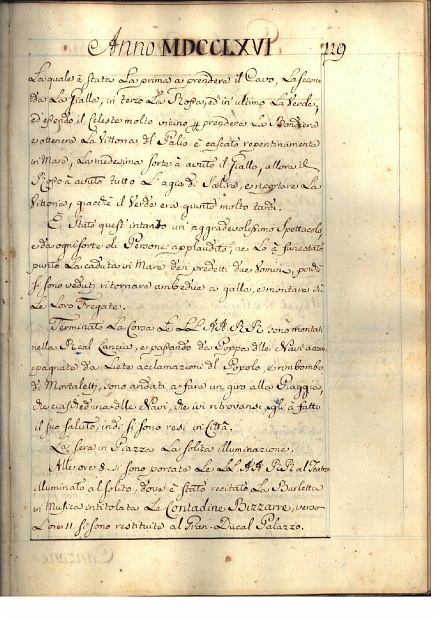 Anno MDCCLXVI 129
La quale è stata La prima a prendere il Cavo, La secon
da La Gialla, in terzo La Rossa, ed in ultimo La Verde,
ed essendo il Celeste molto vicino p prendere La Bandiera
e ottenere La Vittoria del Palio è cascato repentinamente
in Mare, La medesima sorte à avuto il Giallo, allora il
Rosso à avuto tutto L'agio di Salire, e riportare La
Vittoria, giacchè il Verde era giunto molto tardi.
È stato quest'intanto un aggradevolissimo Spettacolo
e da ogni sorte di Persone applaudito, ne Lo à funestato
punto La caduta in Mare dei predetti due Uomini, poichè
si sono veduti ritornare ambedue a galla, e montare su
Le Loro Fregate.
Terminata La Corsa Le LL. AA. RR. sono montati
nella Real Lancia, e passando da Poppa delle Navi accom
pagnate da Liete acclamazioni del Popolo, e rimbombo
di Mortaletti, sono andati a fare un giro alla Piaggia,
che ciascheduna delle Navi, che ivi ritrovansi egli à fatto
il suo saluto, indi si sono resi in Città.
La sera in Piazza La solita illuminazione.
Alle ore 8. si sono portate Le LL. AA. RR. al Teatro
illuminato al solito, dove è stata recitata La Burletta
in Musica intitolata Le Contadine Bizzarre, verso
L'ore 11. si sono restituite al Gran-Ducal Palazzo.